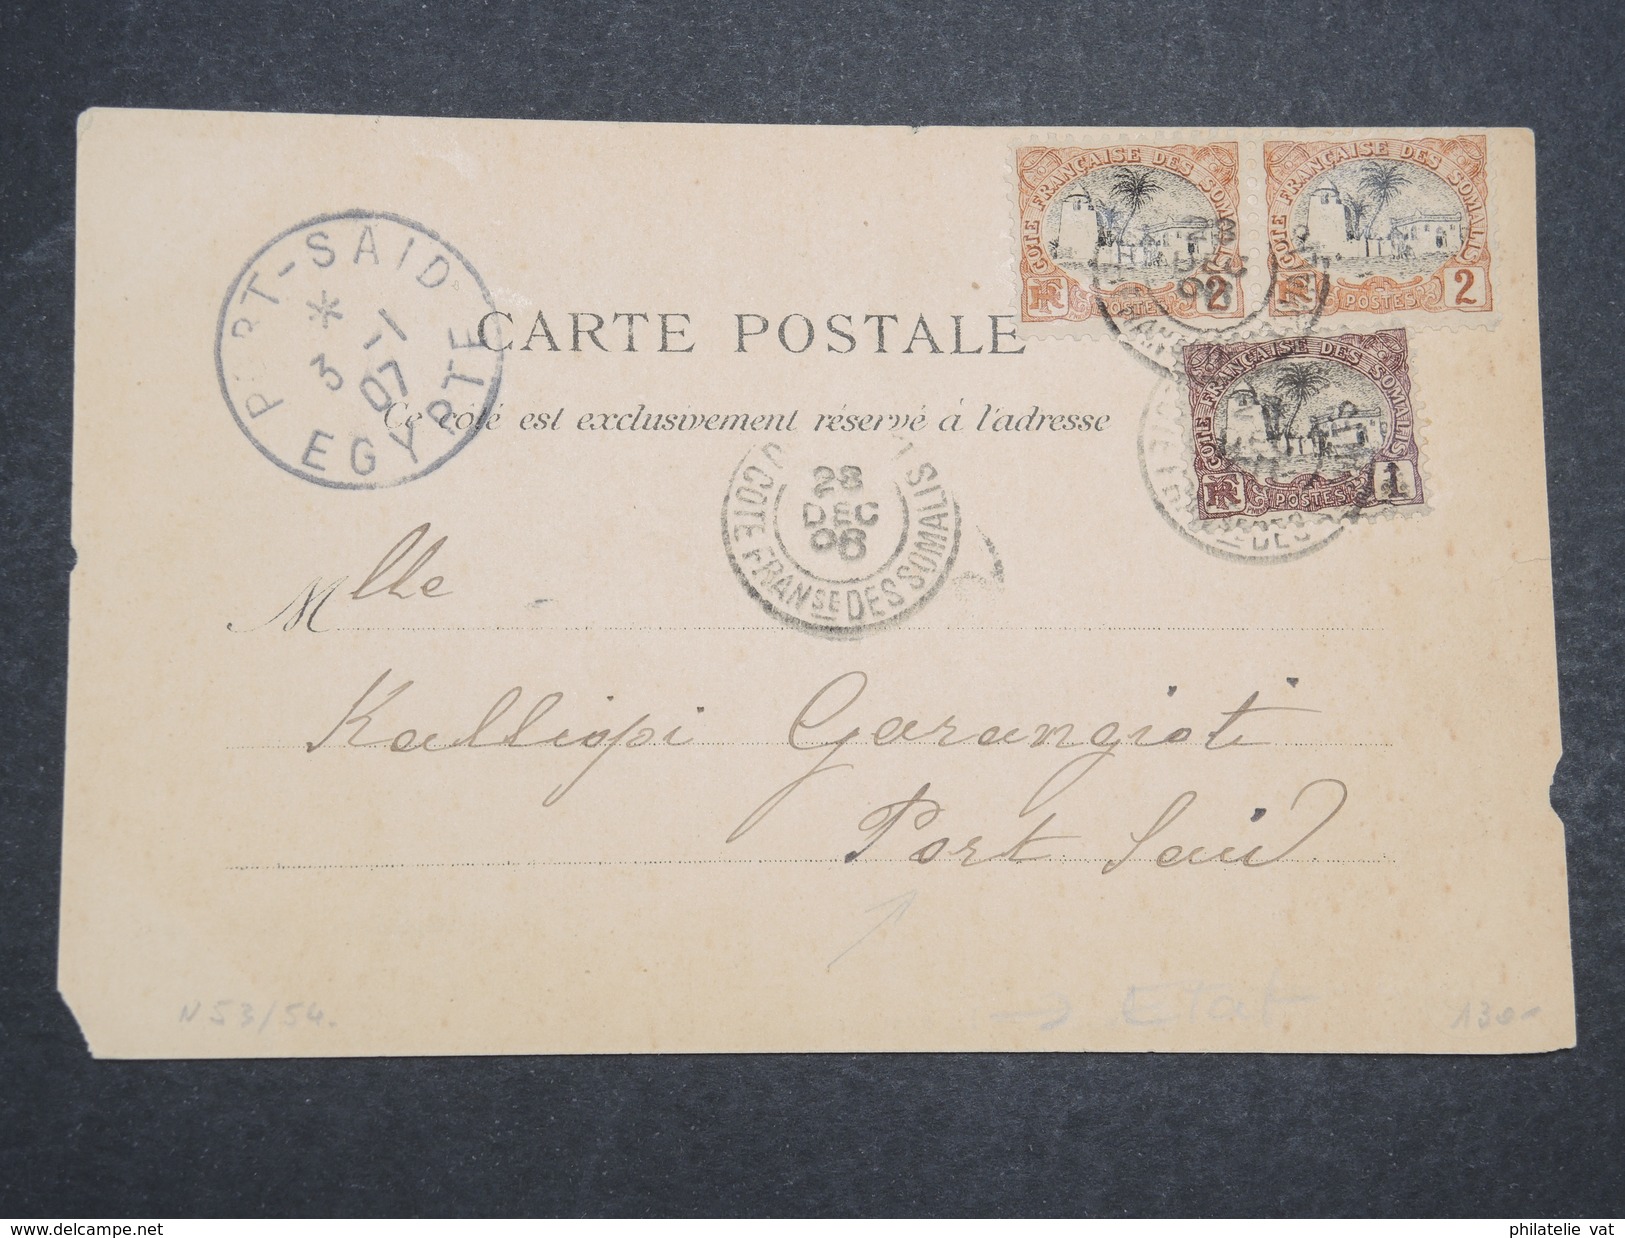 COTE FRANÇAISE DES SOMALIS
RF POSTES 2
COTE FRANÇAISE DES SOMALIS
RF POSTES 2
28
DEC
06
PORT-SAID
*
3 -1
07
EGYPTE
CARTE POSTALE
COTE FRANÇAISE DES SOMALIS
RF POSTES 1
Ce côté est exclusivement réservé à l'adresse
28
DEC
06
COTE FRANSE DES SOMALIS
Mlle
Kalliopi Garangioti
Port Said
N 53/54.
→ Etat
130-
www.delcampe.net
philatelie vat